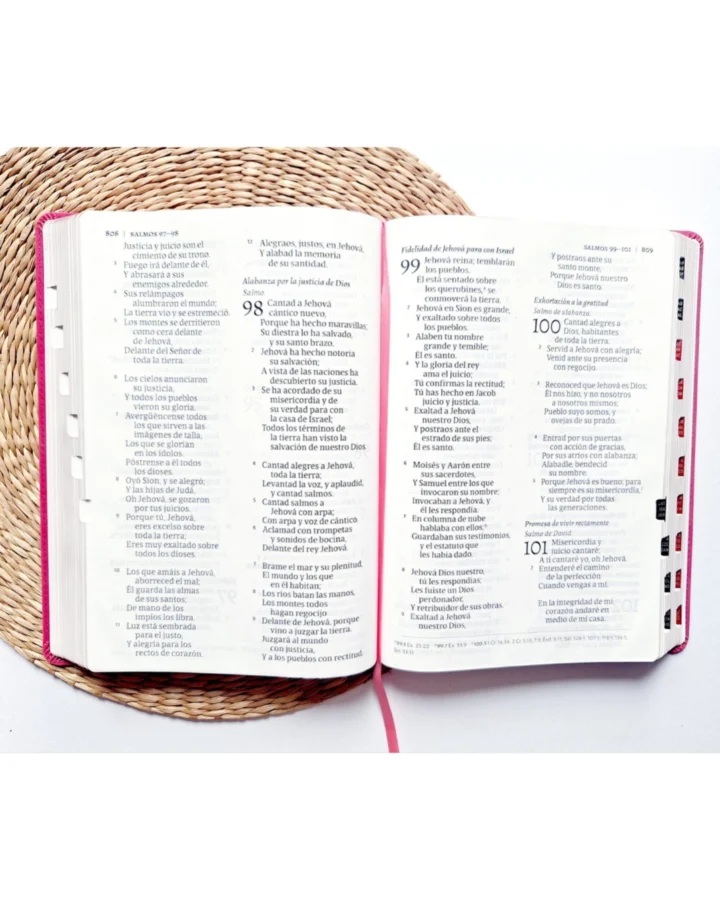 808 | SALMOS 97–98
Justicia y juicio son el
cimiento de su trono.
3 Fuego irá delante de él,
Y abrasará a sus
enemigos alrededor.
4 Sus relámpagos
alumbraron el mundo;
La tierra vio y se estremeció.
5 Los montes se derritieron
como cera delante
de Jehová,
Delante del Señor de
toda la tierra.
6 Los cielos anunciaron
su justicia,
Y todos los pueblos
vieron su gloria.
7 Avergüéncense todos
los que sirven a las
imágenes de talla,
Los que se glorían
en los ídolos.
Póstrense a él todos
los dioses.
8 Oyó Sion, y se alegró;
Y las hijas de Judá,
Oh Jehová, se gozaron
por tus juicios.
9 Porque tú, Jehová,
eres excelso sobre
toda la tierra;
Eres muy exaltado sobre
todos los dioses.
10 Los que amáis a Jehová,
aborreced el mal;
Él guarda las almas
de sus santos;
De mano de los
impíos los libra.
11 Luz está sembrada
para el justo,
Y alegría para los
rectos de corazón.
12 Alegraos, justos, en Jehová,
Y alabad la memoria
de su santidad.
Alabanza por la justicia de Dios
Salmo.
98 Cantad a Jehová
cántico nuevo,
Porque ha hecho maravillas;
Su diestra lo ha salvado,
y su santo brazo.
2 Jehová ha hecho notoria
su salvación;
A vista de las naciones ha
descubierto su justicia.
3 Se ha acordado de su
misericordia y de
su verdad para con
la casa de Israel;
Todos los términos de
la tierra han visto la
salvación de nuestro Dios.
4 Cantad alegres a Jehová,
toda la tierra;
Levantad la voz, y aplaudid,
y cantad salmos.
5 Cantad salmos a
Jehová con arpa;
Con arpa y voz de cántico.
6 Aclamad con trompetas
y sonidos de bocina,
Delante del rey Jehová.
7 Brame el mar y su plenitud,
El mundo y los que
en él habitan;
8 Los ríos batan las manos,
Los montes todos
hagan regocijo
9 Delante de Jehová, porque
vino a juzgar la tierra.
Juzgará al mundo
con justicia,
Y a los pueblos con rectitud.
SALMOS 99–101 | 809
Fidelidad de Jehová para con Israel
99 Jehová reina; temblarán
los pueblos.
Él está sentado sobre
los querubines, se
conmoverá la tierra.
2 Jehová en Sion es grande,
Y exaltado sobre todos
los pueblos.
3 Alaben tu nombre
grande y temible;
Él es santo.
4 Y la gloria del rey
ama el juicio;
Tú confirmas la rectitud;
Tú has hecho en Jacob
juicio y justicia.
5 Exaltad a Jehová
nuestro Dios,
Y postraos ante el
estrado de sus pies;
Él es santo.
6 Moisés y Aarón entre
sus sacerdotes,
Y Samuel entre los que
invocaron su nombre;
Invocaban a Jehová, y
él les respondía.
7 En columna de nube
hablaba con ellos;
Guardaban sus testimonios,
y el estatuto que
les había dado.
8 Jehová Dios nuestro,
tú les respondías;
Les fuiste un Dios
perdonador,
Y retribuidor de sus obras.
9 Exaltad a Jehová
nuestro Dios,
Y postraos ante su
santo monte,
Porque Jehová nuestro
Dios es santo.
Exhortación a la gratitud
Salmo de alabanza.
100 Cantad alegres a
Dios, habitantes
de toda la tierra.
2 Servid a Jehová con alegría;
Venid ante su presencia
con regocijo.
3 Reconoced que Jehová es Dios;
Él nos hizo, y no nosotros
a nosotros mismos;
Pueblo suyo somos, y
ovejas de su prado.
4 Entrad por sus puertas
con acción de gracias,
Por sus atrios con alabanza;
Alabadle, bendecid
su nombre.
5 Porque Jehová es bueno; para
siempre es su misericordia,
Y su verdad por todas
las generaciones.
Promesa de vivir rectamente
Salmo de David.
101 Misericordia y
juicio cantaré;
A ti cantaré yo, oh Jehová.
2 Entenderé el camino
de la perfección
Cuando vengas a mí.
En la integridad de mi
corazón andaré en
medio de mi casa.